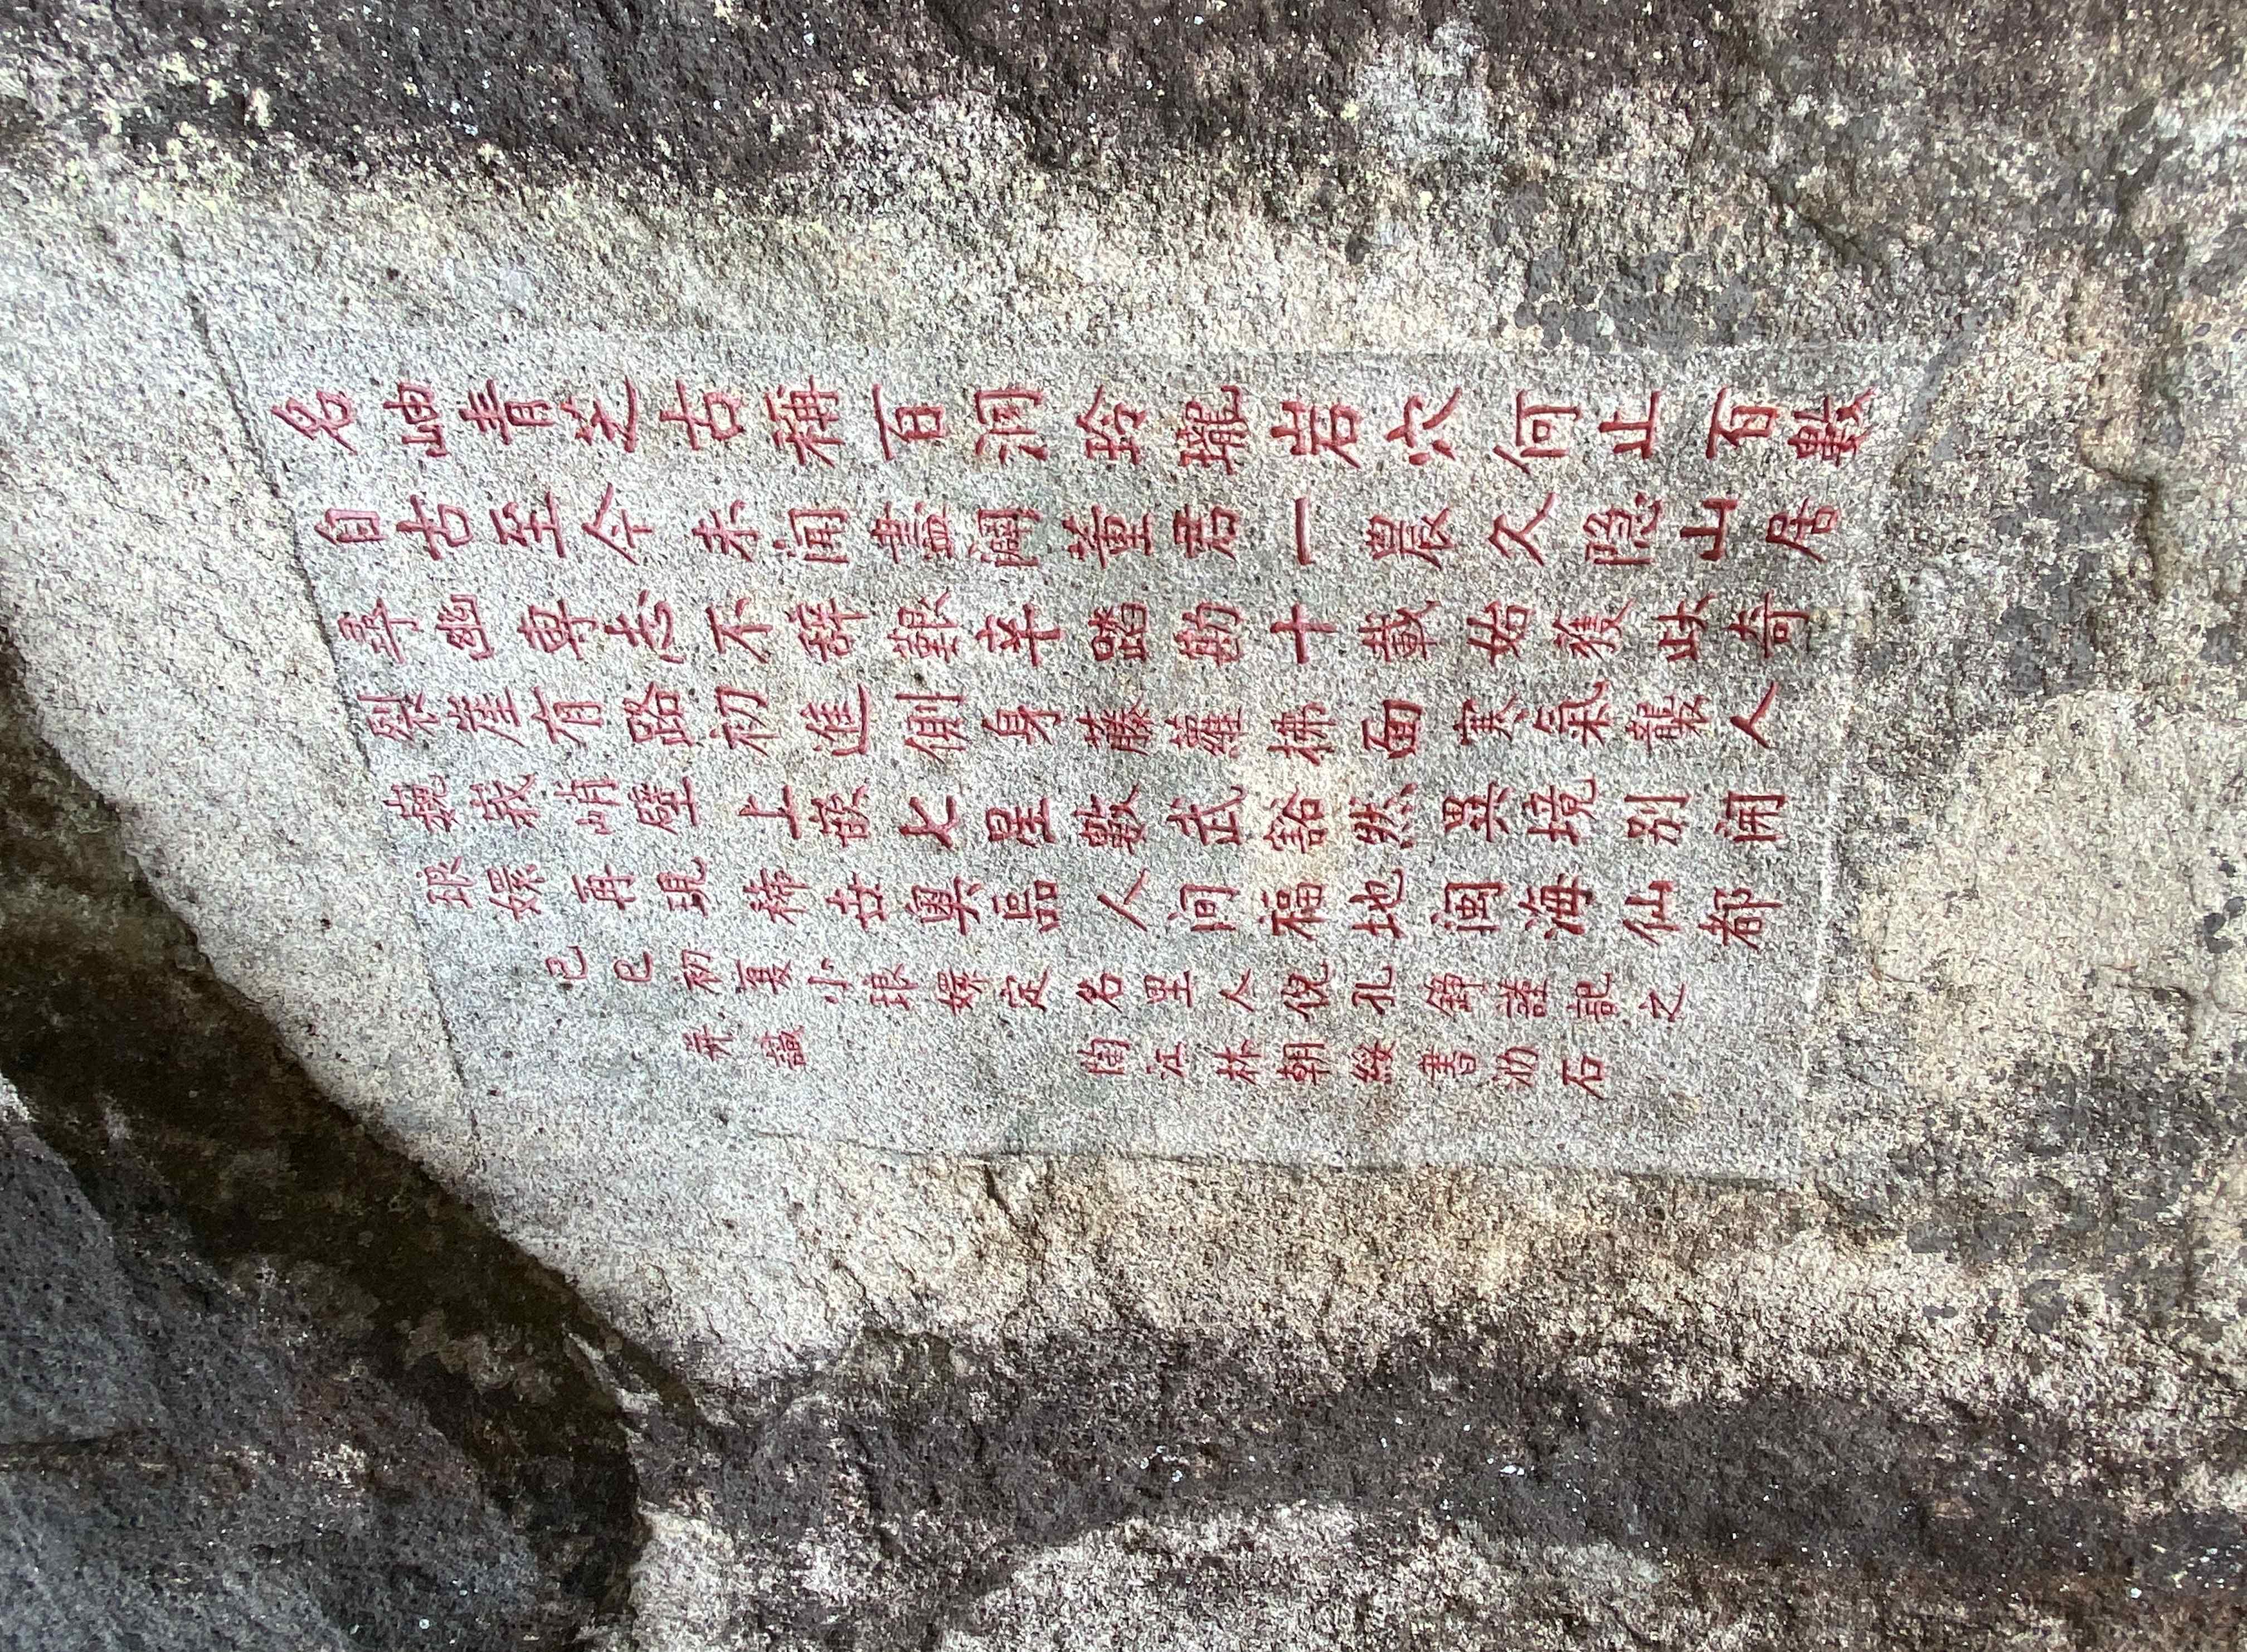 名岫青芝古稱百洞玲瓏岩穴何止百數
自古至今未闻盡闢董君一農久隱山居
尋幽專志不辭艱辛踏勘十載始獲此奇
裂崖有路初進側身藤蘿拂面寒氣襲人
巍峩峭壁上嵌七星數武豁然異境别開
琅嬛再現稀世奥區人间福地闽海仙都
己巳初夏小琅嬛定名里人倪孔錚謹記之
并識 陶江林朝綏書泐石